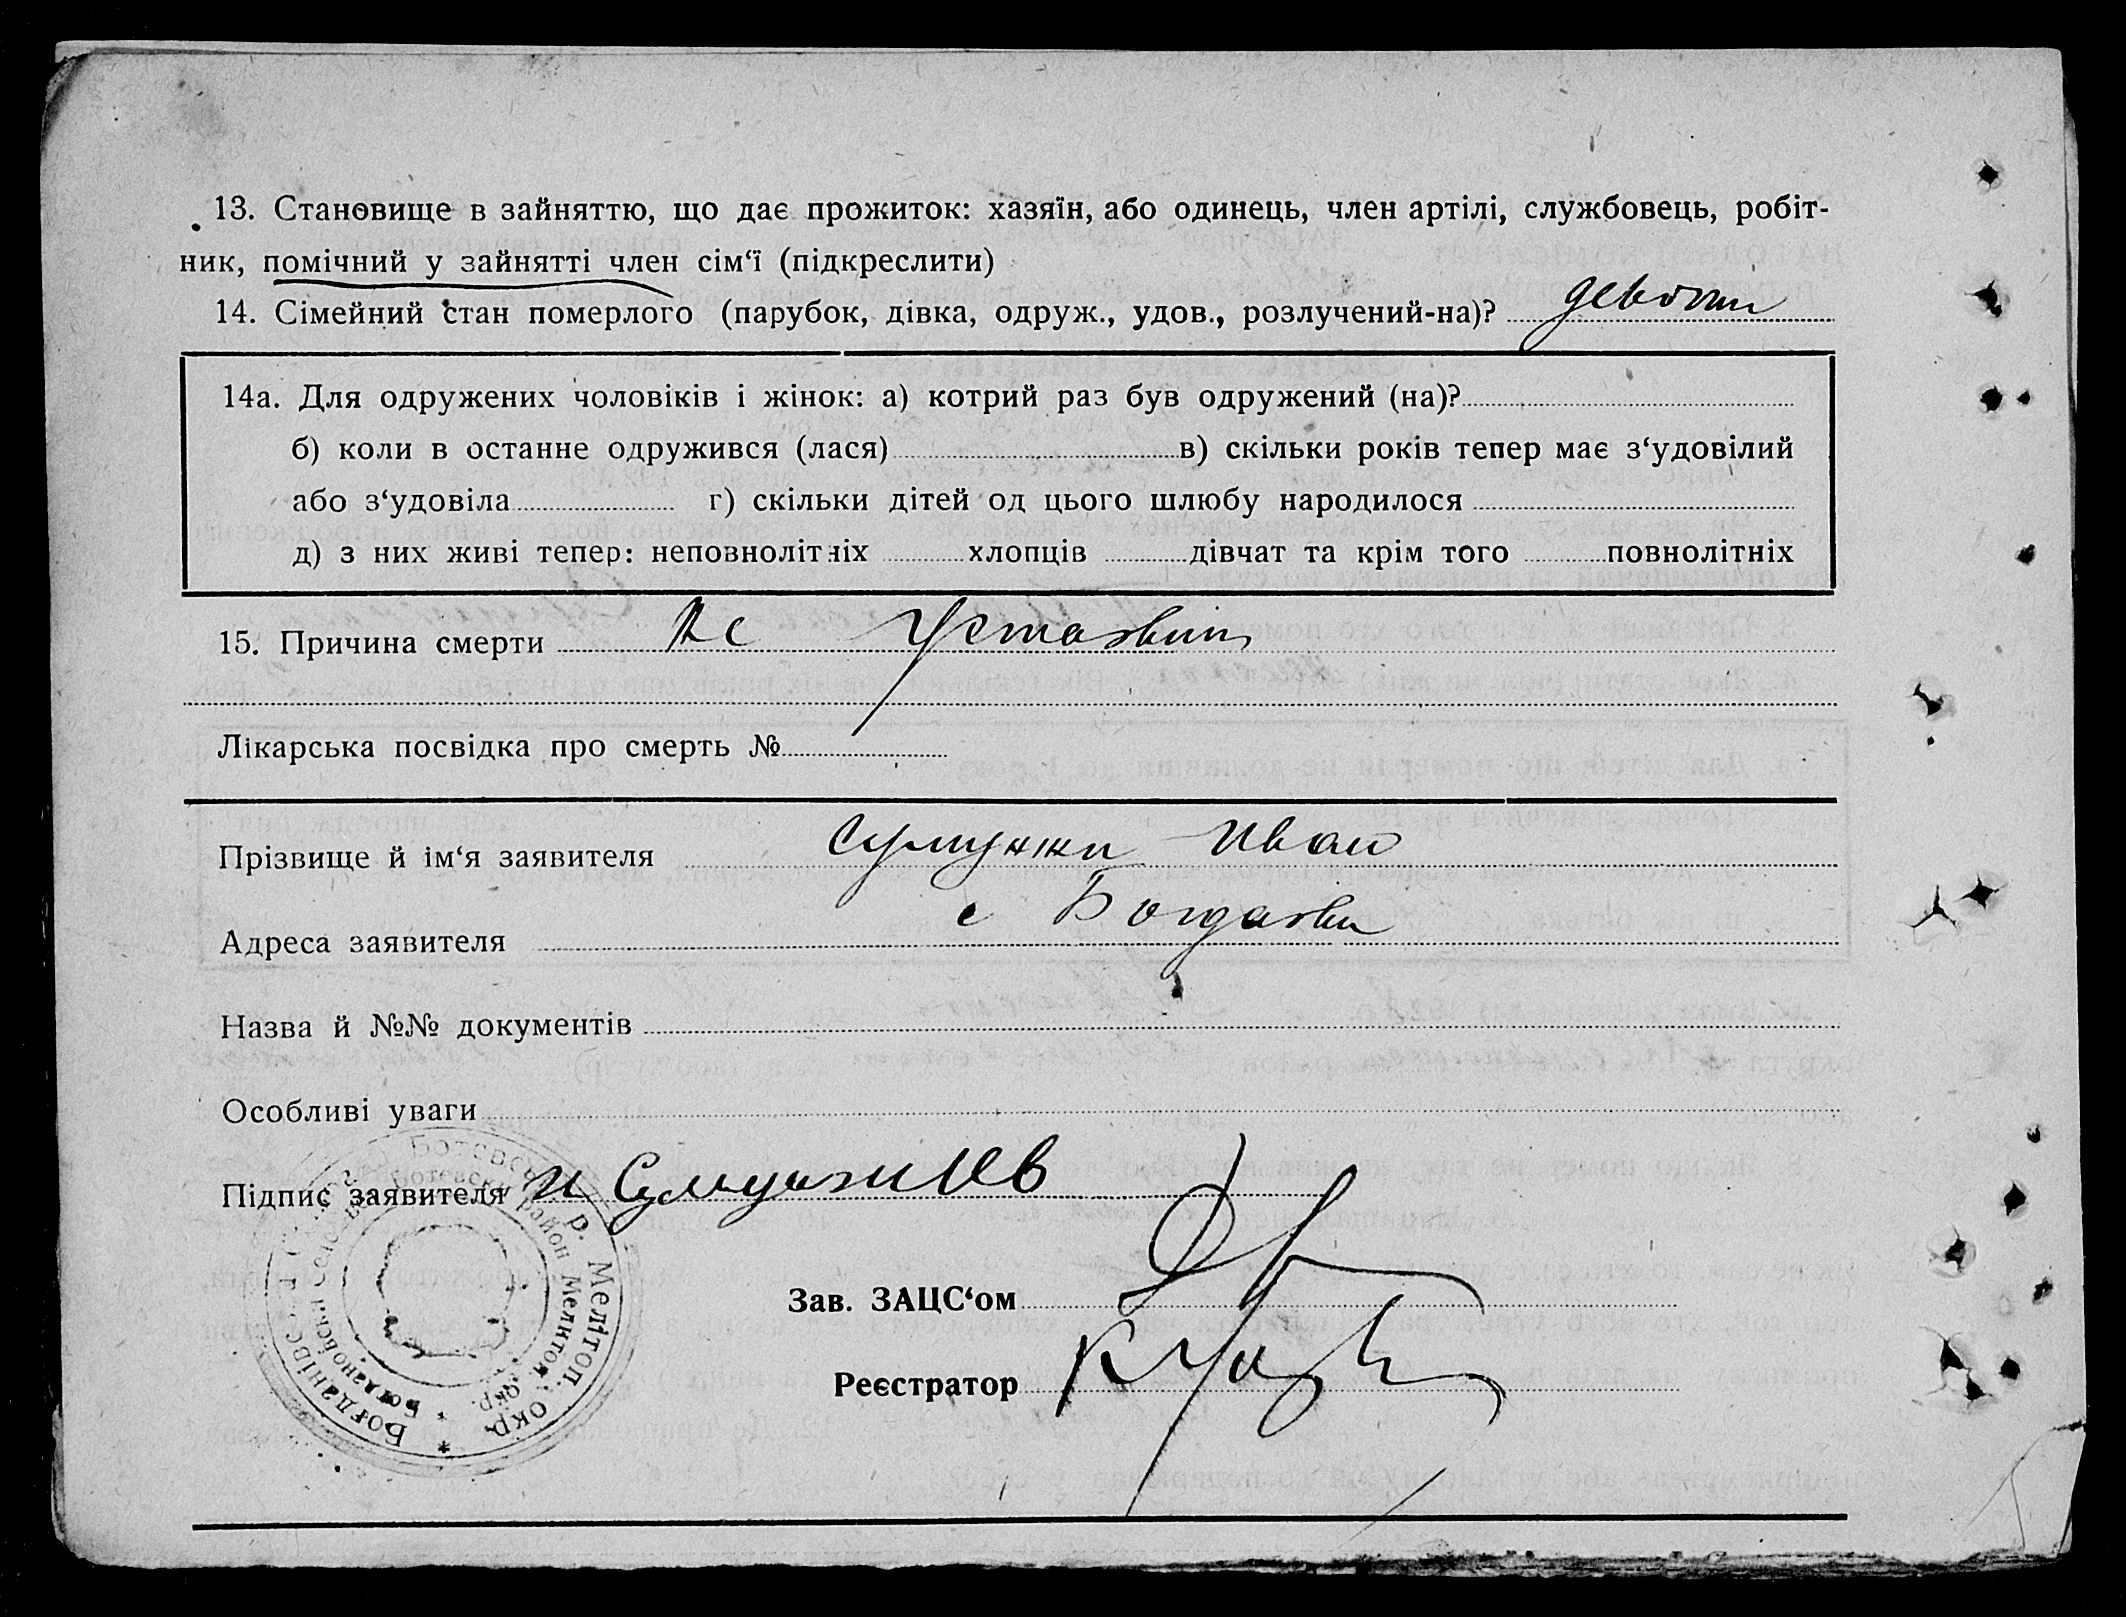 13. Становище в зайняттю, що дає прожиток: хазяїн, або одинець, член артілі, службовець, робіт-
ник, помічний у зайнятті член сім‘ї (підкреслити)
14. Сімейний стан померлого (парубок, дівка, одруж., удов., розлучений-на)?
14а. Для одружених чоловіків і жінок: а) котрий раз був одружений (на)?
б) коли в останне одружився (лася) в) скільки років тепер має з‘удовілий
або з‘удовіла г) скільки дітей од цього шлюбу народилося
д) з них живі тепер: неповнолітніх хлопців дівчат та крім того повнолітніх
15. Причина смерти не
Лікарська посвідка про смерть №
Прізвище й ім‘я заявителя Сумунжи Иван
Адреса заявителя с Богдановки
Назва й №№ документів
Особливі уваги
Підпис заявителя И Сумунжиев
Зав. ЗАЦС‘ом
Реєстратор
Богданівс Мелітоп. окр. *
район Мелитоп. окр. *